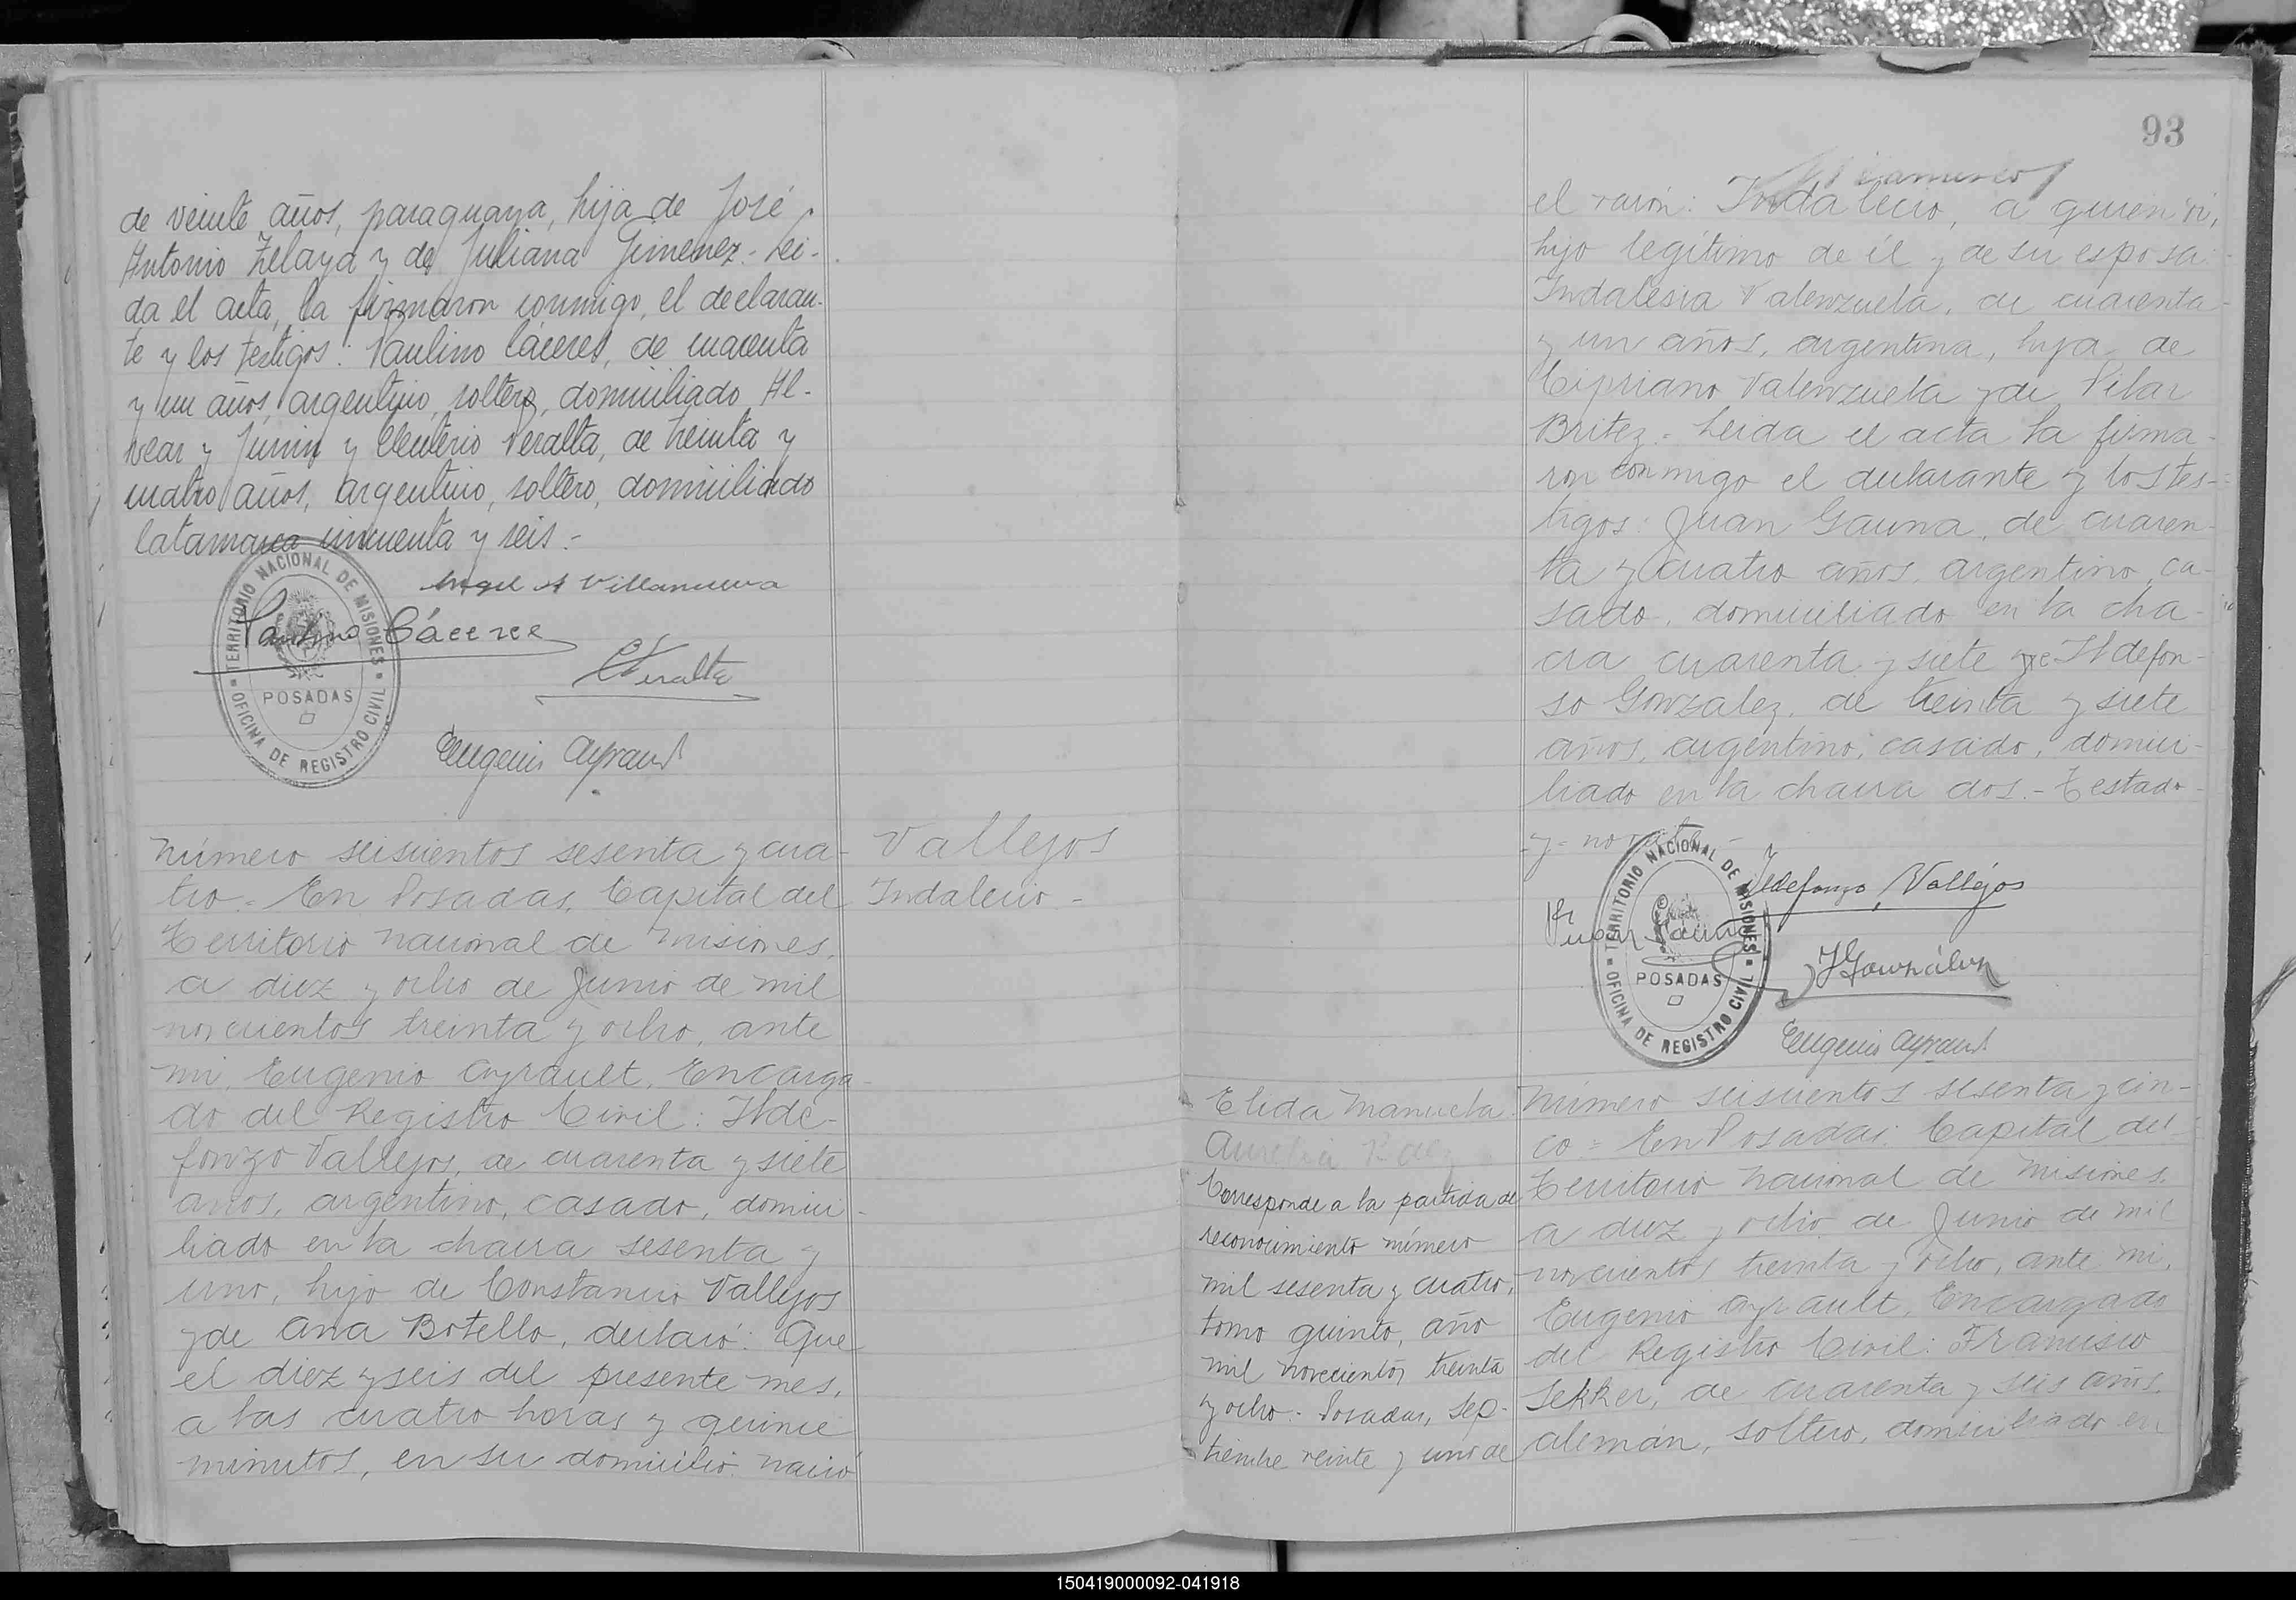 de veinte años, paraguaya, hija de José
Antonio Zelaya y de Juliana Gimenez.- Lei-
da el acta, la firmaron conmigo, el declaran-
te y los testigos: Paulino Cáceres, de cuarenta
y un años, argentino, soltero, domiciliado Al-
vear y Junin y Eleuterio Peralta, de treinta y
cuatro años, argentino, soltero, domiciliado
Catamarca cincuenta y seis.-
Angel A Villanueva
Paulino Cáceres
EPeralta
TERRITORIO NACIONAL DE MISIONES
POSADAS
OFICINA DE REGISTRO CIVIL
Eugenio Ayrault
Número seiscientos sesenta y cua-
tro.- En Posadas, Capital del
Territorio nacional de Misiones,
a diez y ocho de Junio de mil
novecientos treinta y ocho, ante
mi, Eugenio Ayrault, Encarga-
do del Registro Civil: Ilde-
fonzo Vallejos, de cuarenta y siete
años, argentino, casado, domici-
liado en la chacra sesenta y
uno, hijo de Constancio Vallejos
y de Ana Botello, declaró: Que
el diez y seis del presente mes,
a las cuatro horas y quince
minutos, en su domicilio nació
Vallejos
Indalecio -
93
el varón: Indalecio, a quien vi,
hijo legítimo de él y de su esposa
Indalesia Valenzuela, de cuarenta
y un años, argentina, hija de
Cipriano Valenzuela y de Pilar
Britez.- Leida el acta la firma-
ron conmigo el declarante y los tes-
tigos: Juan Gauna, de cuaren-
ta y cuatro años, argentino, ca-
sado, domiciliado en la cha-
cra cuarenta y siete y Ildefon-
so Gonzalez, de treinta y siete
años, argentino, casado, domici-
liado en la chacra dos.- Testado
-y- no vale -
Ildefonzo Vallejos
Juan Gauna
IGonzález
TERRITORIO NACIONAL DE MISIONES
POSADAS
OFICINA DE REGISTRO CIVIL
Eugenio Ayrault
Elida Manuela
Aurelia Baez
Corresponde a la partida de
reconocimiento número
mil sesenta y cuatro,
tomo quinto, año
mil novecientos treinta
y ocho.- Posadas, Sep-
tiembre veinte y uno de
Número seiscientos sesenta y cin-
co = En Posadas, Capital del
Territorio nacional de Misiones,
a diez y ocho de Junio de mil
novecientos treinta y ocho, ante mi,
Eugenio Ayrault, Encargado
del Registro Civil: Francisco
Sekker, de cuarenta y seis años,
alemán, soltero, domiciliado en
150419000092-041918